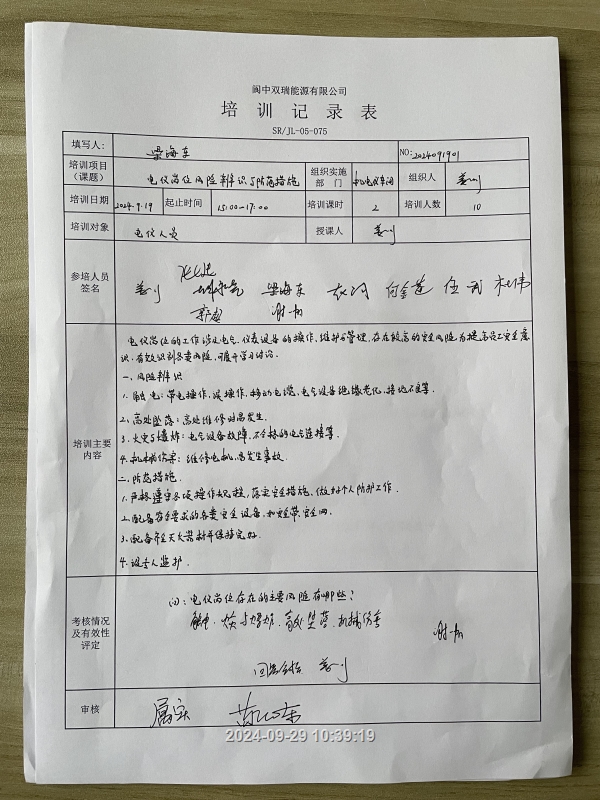 闽中双瑞能源有限公司
培训记录表
SR/JL-05-075
填写人： 梁海东 NO:2024091901
培训项目（课题） 电仪岗位风险辨识与防范措施 组织实施部门 电仪车间 组织人 姜川
培训日期 2024.9.19 起止时间 15:00~17:00 培训课时 2 培训人数 10
培训对象 电仪人员 授课人 姜川
参培人员签名
姜川 梁海东 何金莲 伍 杜伟
谢
培训主要内容
电仪岗位的工作涉及电气、仪表设备的操作、维护与管理，存在较高的安全风险，为提高员工安全意
识，有效识别各类风险，开展学习讨论。
一、风险辨识
1、触电：带电操作，误操作，电缆，电气设备绝缘老化，接地不良等。
2、高处坠落：高处维修时易发生。
3、火灾与爆炸：电气设备故障，不合格的电气连接等。
4、机械伤害：维修电机，易发生事故。
二、防范措施
1、严格遵守各项操作规程，落实安全措施、做好个人防护工作。
2、配备符合要求的各类安全设备，如安全带、安全网。
3、配备齐全灭火器材并保持完好。
4、设专人监护。
考核情况及有效性评定
问：电仪岗位存在的主要风险有哪些？
触电、火灾与爆炸、高处坠落、机械伤害
谢
回答合格 姜川
审核 属实
2024-09-29 10:39:19